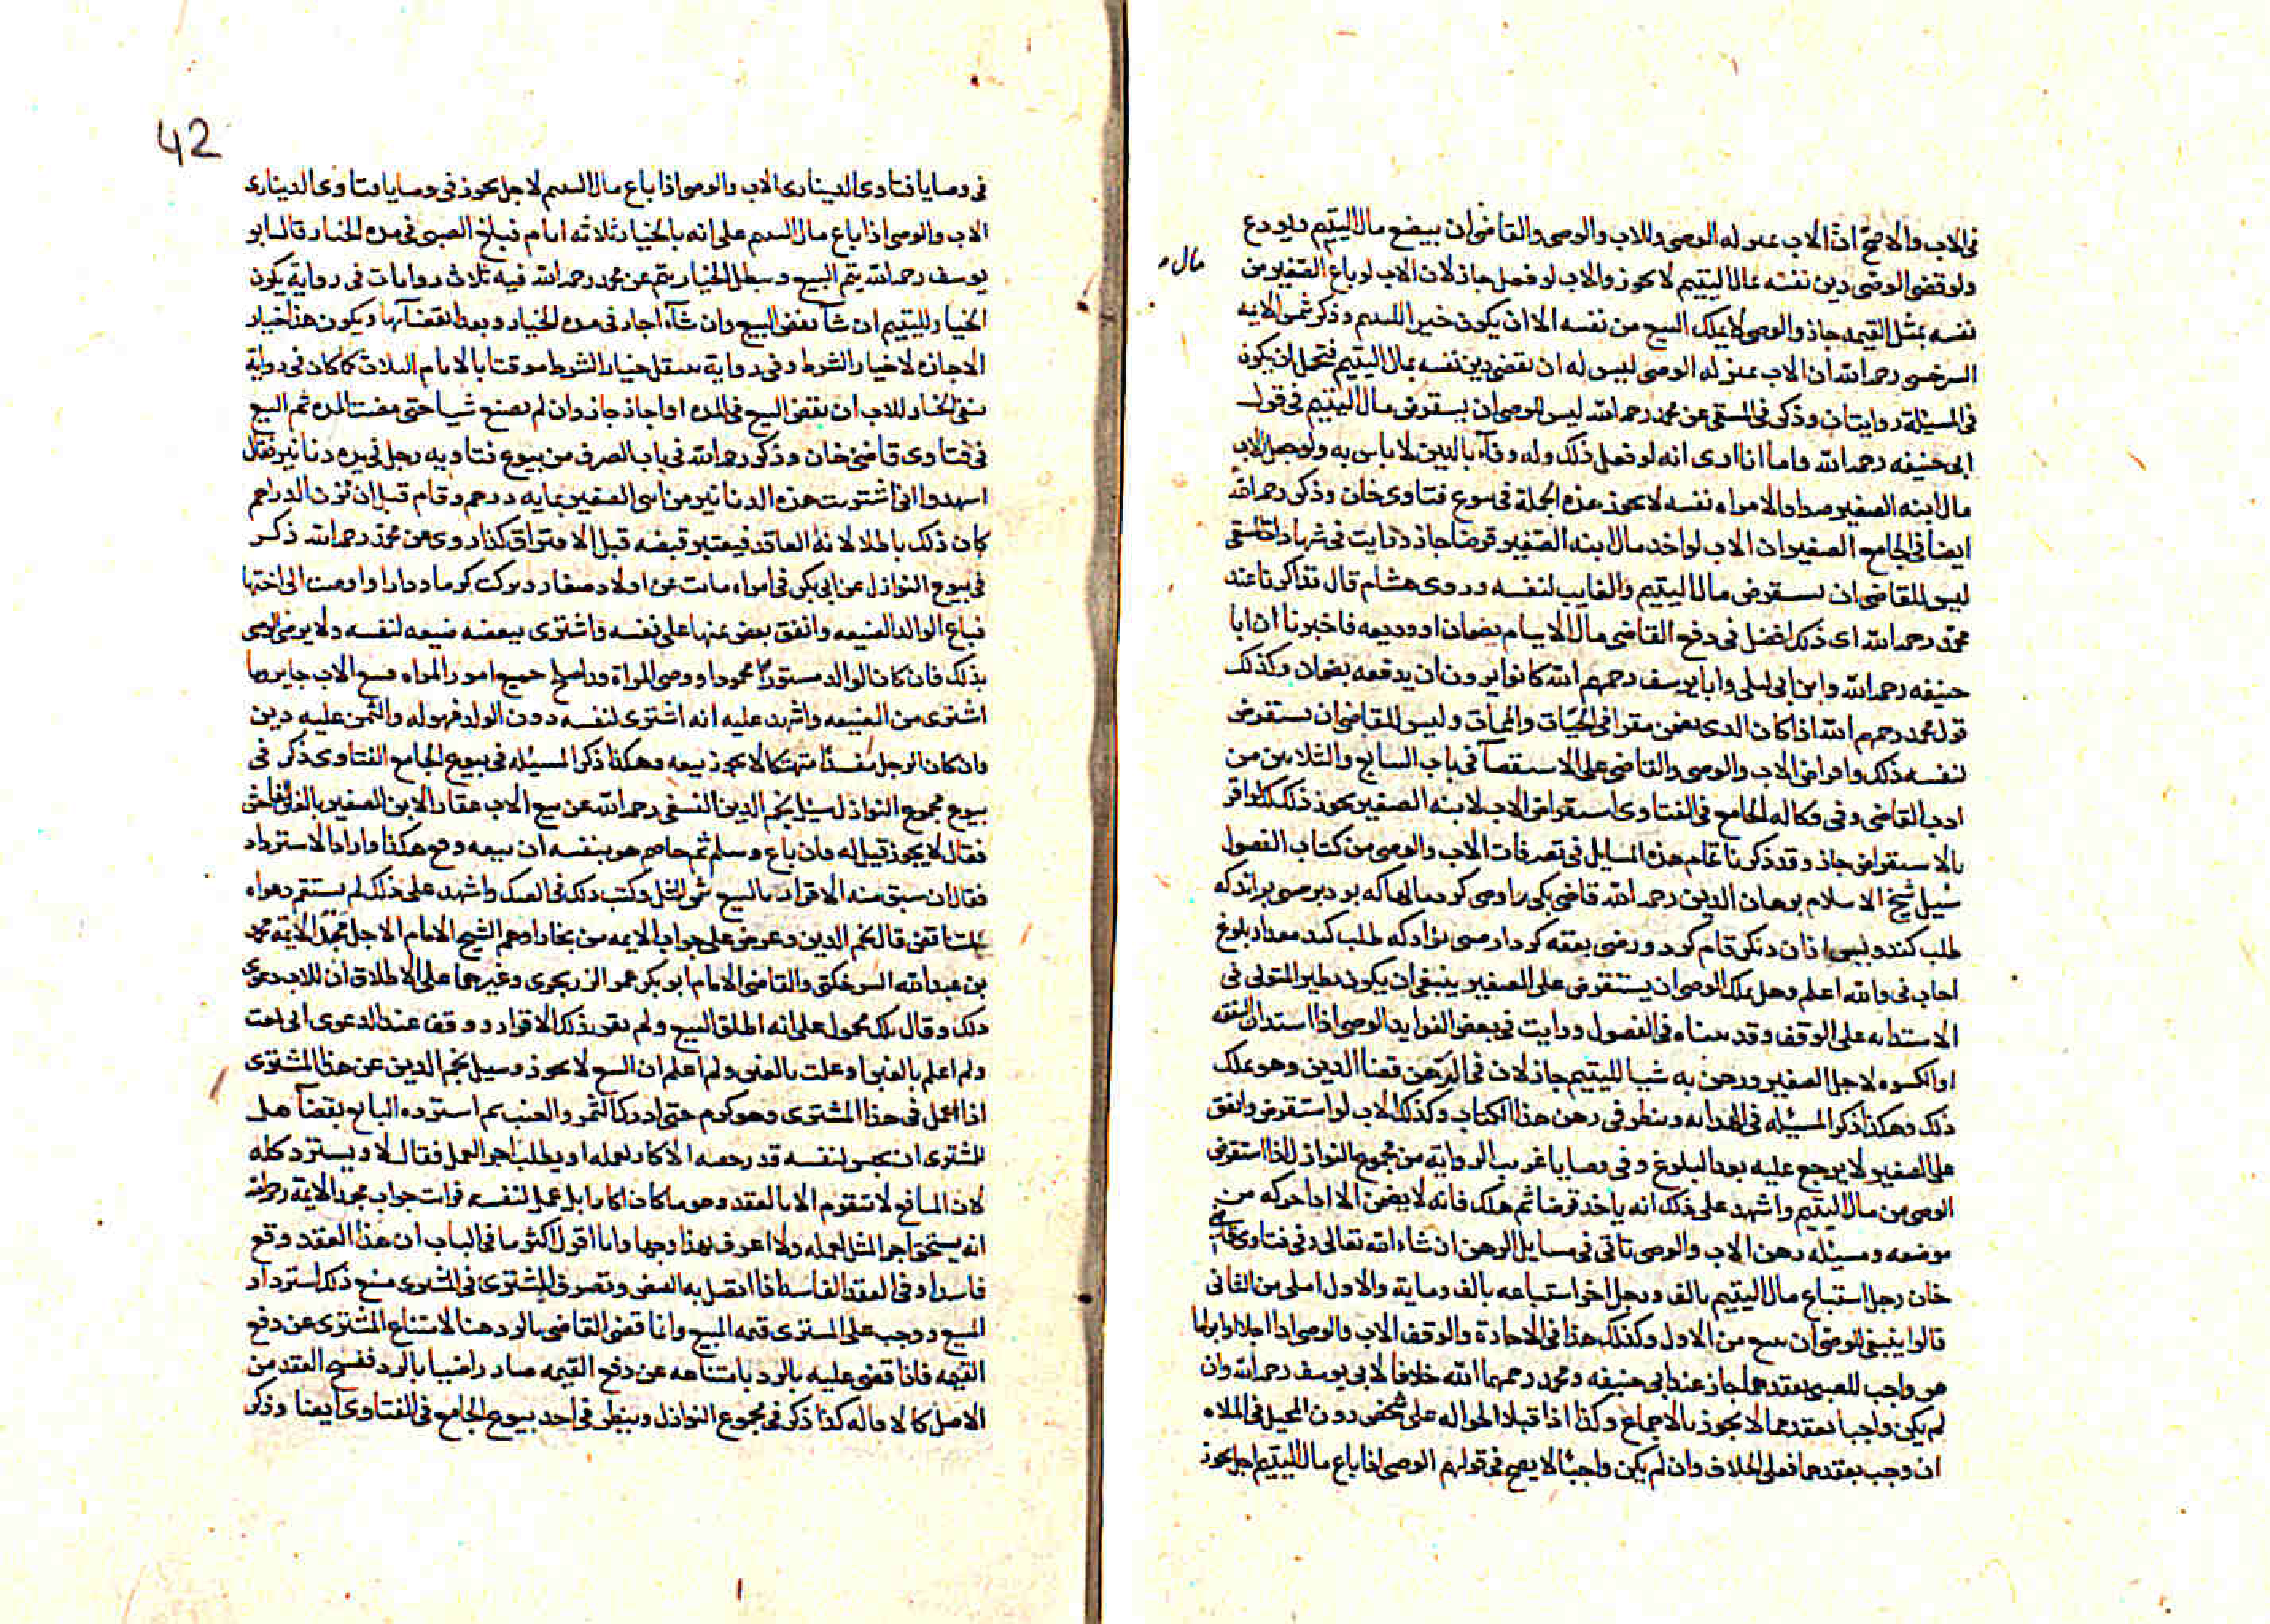 في الاب والاصح ان الاب بمنزله الوصي وللاب والوصي والقاضي ان يبضع مال اليتيم ويودع
مال
ولو قضى الوصي دين نفسه بمال اليتيم لا يجوز والاب لو فعل جاز لان الاب لو باع الصغير من
نفسه بمثل القيمه جاز والوصي لا يملك البيع من نفسه الا ان يكون خيرا لليتيم وذكر شمس الايمه
السرخسي رحمه الله ان الاب بمنزله الوصي ليس له ان يقضي دين نفسه بمال اليتيم فتحمل ان يكون
في المسئلة روايتان وذكر في المنتقى عن محمد رحمه الله ليس للوصي ان يستقرض مال اليتيم في قول
ابي حنيفه رحمه الله واما انا ارى انه لو فعل ذلك وله وفآء بالدين لا باس به ولو جعل الاب
مال ابنه الصغير صداقا لامراه نفسه لا يجوز هذه الجملة في بيوع فتاوى خان وذكر رحمه الله
ايضا في الجامع الصغير ان الاب لو اخد مال ابنه الصغير قرضا جاز ورايت في شهادات المنتقى
ليس للقاضي ان يستقرض مال اليتيم والغايب لنفسه وروى هشام قال تذاكرنا عند
محمد رحمه الله اى ذلك افضل في دفع القاضي مال الايتام بضمان او وديعه فاخبرنا ان ابا
حنيفه رحمه الله وابن ابي ليلى وابا يوسف رحمهم الله كانوا يرون ان يدفعه بضمان وكذلك
قول محمد رحمهم الله اذا كان الدى يضمن مقرا في الحيات والممات وليس للقاضي ان يستقرض
لنفسه ذلك واقراض الاب والوصي والقاضي على الاستقصآ في باب السابع والثلاثين من
ادب القاضي وفي وكاله الجامع في الفتاوى استقراض الاب لابنه الصغير يجوز ذلك وكذا لو اقر
بالاستقراض جاز وقد ذكرنا تمام هذه المسايل في تصرفات الاب والوصي من كتاب الفصول
سُيل شيخ الاسلام برهان الدين رحمه الله قاضي يكى را وصى كرد
طلب كند
اجاب ني والله اعلم وهل يملك الوصي ان يستقرض على الصغير ينبغي ان يكون نظير المتولي في
الاستدانه على الوقف وقد بيناه في الفصول ورايت في بعض الفوايد الوصي اذا استدان النفقه
او الكسوه لاجل الصغير ورهن به شيا لليتيم جاز لان في الرهن قضا الدين وهو يملك
ذلك وهكذا ذكر المسئله في الهدايه وينظر في رهن هذا الكتاب وكذلك الاب لو استقرض وانفق
على الصغير لا يرجع عليه بعد البلوغ وفي وصايا غريب الرواية من مجموع النوازل اذا استقرض
الوصي من مال اليتيم واشهد على ذلك انه ياخد قرضا ثم هلك فانه لا يضمن الا اذا حركه من
موضعه ومسئله رهن الاب والوصي تاتي في مسايل الرهن ان شاء الله تعالى وفي فتاوى قاضي
خان رجل استباع مال اليتيم بالف ورجل اخر استباعه بالف وماية والاول املى من الثاني
قالوا ينبغي للوصي ان يبيع من الاول وكذلك هذا في الاجارة والوقف الاب والوصي اذا اجلا او ابرءا
عن واجب للصبي بعقدهما جاز عند ابي حنيفه ومحمد رحمهما الله خلافا لابي يوسف رحمه الله وان
لم يكن واجبا بعقدهما لا يجوز بالاجماع وكذا اذا قبلا الحواله على شخص دون المحيل في الملاه
ان وجب بعقدهما فعلى الخلاف وان لم يكن واجبا لا يصح في قولهم الوصي اذا باع مال اليتيم اجل يجوز
42
في وصايا فتاوى الديناري الاب والوصي اذا باع مال اليتيم لاجل يجوز في وصايا فتاوى الديناري
الاب والوصي اذا باع مال اليتيم على انه بالخيار ثلاثه ايام فبلغ الصبي في مده الخيار قال ابو
يوسف رحمه الله يتم البيع ويبطل الخيار يتم عن محمد رحمه الله فيه ثلاث روايات في رواية يكون
الخيار لليتيم ان شآ نقض البيع وان شآء اجاز في مده الخيار وبعد انقضآئها ويكون هذا خيار
الاجازه لا خيار الشرط وفي رواية ينتقل خيار الشرط موقتا بالايام الثلاث كما كان في رواية
يبقى الخيار للاب ان نقض البيع في المده او اجاز جاز وان لم يصنع شيا حتى مضت المده تم البيع
في فتاوى قاضي خان وذكر رحمه الله في باب الصرف من بيوع فتاويه رجل في يده دنانير فقال
اشهدوا اني اشتريت هذه الدنانير من ابني الصغير بمايه درهم وقام قبل ان يزن الدراهم
كان ذلك باطلا لانه العاقد فيعتبر قبضه قبل الافتراق كذا روى عن محمد رحمه الله ذكر
في بيوع النوازل عن ابي بكر في امراه ماتت عن اولاد صغار وتركت كرما ودارا واوصت الى اختها
فباع الوالد الضيعه وانفق بعض ثمنها على نفسه واشترى ببعضه ضيعه لنفسه ولا يرضى الوصي
بذلك فان كان الوالد مستورا محمودا ووصى المراة وداصلح جميع امور المراه فبيع الاب جايز وما
اشترى من الضيعه واشهد عليه انه اشترى لنفسه دون الولد فهو له والثمن عليه دين
وان كان الرجل مفسدا متهتكا لا يجوز بيعه وهكذا ذكر المسئله في بيوع الجامع الفتاوى ذكر في
بيوع مجموع النوازل سيل نجم الدين النسفي رحمه الله عن بيع الاب عقار الابن الصغير بالغبن الفاحش
فقال لا يجوز قيل له فان باع وسلم ثم خاصم هو بنفسه ان بيعه وقع هكذا واراد الاسترداد
فقال ان سبق منه الاقرار بالبيع ثمن المثل وكتب ذلك في الصك واشهد على ذلك لم يستقم دعواه
للتناقض قال نجم الدين وعرض على جواب الايمه من بخارا وهم الشيخ الامام الاجل مجد الايمة محمد
بن عبد الله السرخكتي والقاضي الامام ابو بكر عمر الزرنجري وغيرهما على الاطلاق ان للاب دعوى
ذلك وقال ذلك محمول على انه اطلق البيع ولم يقر بذلك الاقرار ووقف عند الدعوى اني بعت
ولم اعلم بالغبن او علمت بالغبن ولم اعلم ان البيع لا يجوز وسيل نجم الدين عن هذا المشترى
اذا عمل في هذا المشترى وهو كرم حتى ادرك الثمر والعنب ثم استرده البايع بقضآ هل
للمشترى ان يحبس لنفسه قدر حصه الاكار لعمله او يطلب اجر العمل فقال لا ويسترد كله
لان المنافع لا تتقوم الا بالعقد وهو ما كان اكارا بل عمل لنفسه فرات جواب مجد الايمة رحمه الله
انه يستحق اجر المثل لعمله ولا اعرف لهذا وجها وانا اقول اكثر ما في الباب ان هذا العقد وقع
فاسدا وفي العقد الفاسد اذا اتصل به القبض وتصرف المشترى في المشترى منع ذلك استرداد
المبيع ووجب على المشترى قيمه المبيع وانما قضى القاضي بالرد هنا لامتناع المشترى عن دفع
القيمه فاذا قضى عليه بالرد بامتناعه عن دفع القيمه صار راضيا بالرد ففسح العقد من
الاصل كالاقاله كذا ذكر في مجموع النوازل وينظر في احد بيوع الجامع في الفتاوى ايضا وذكر